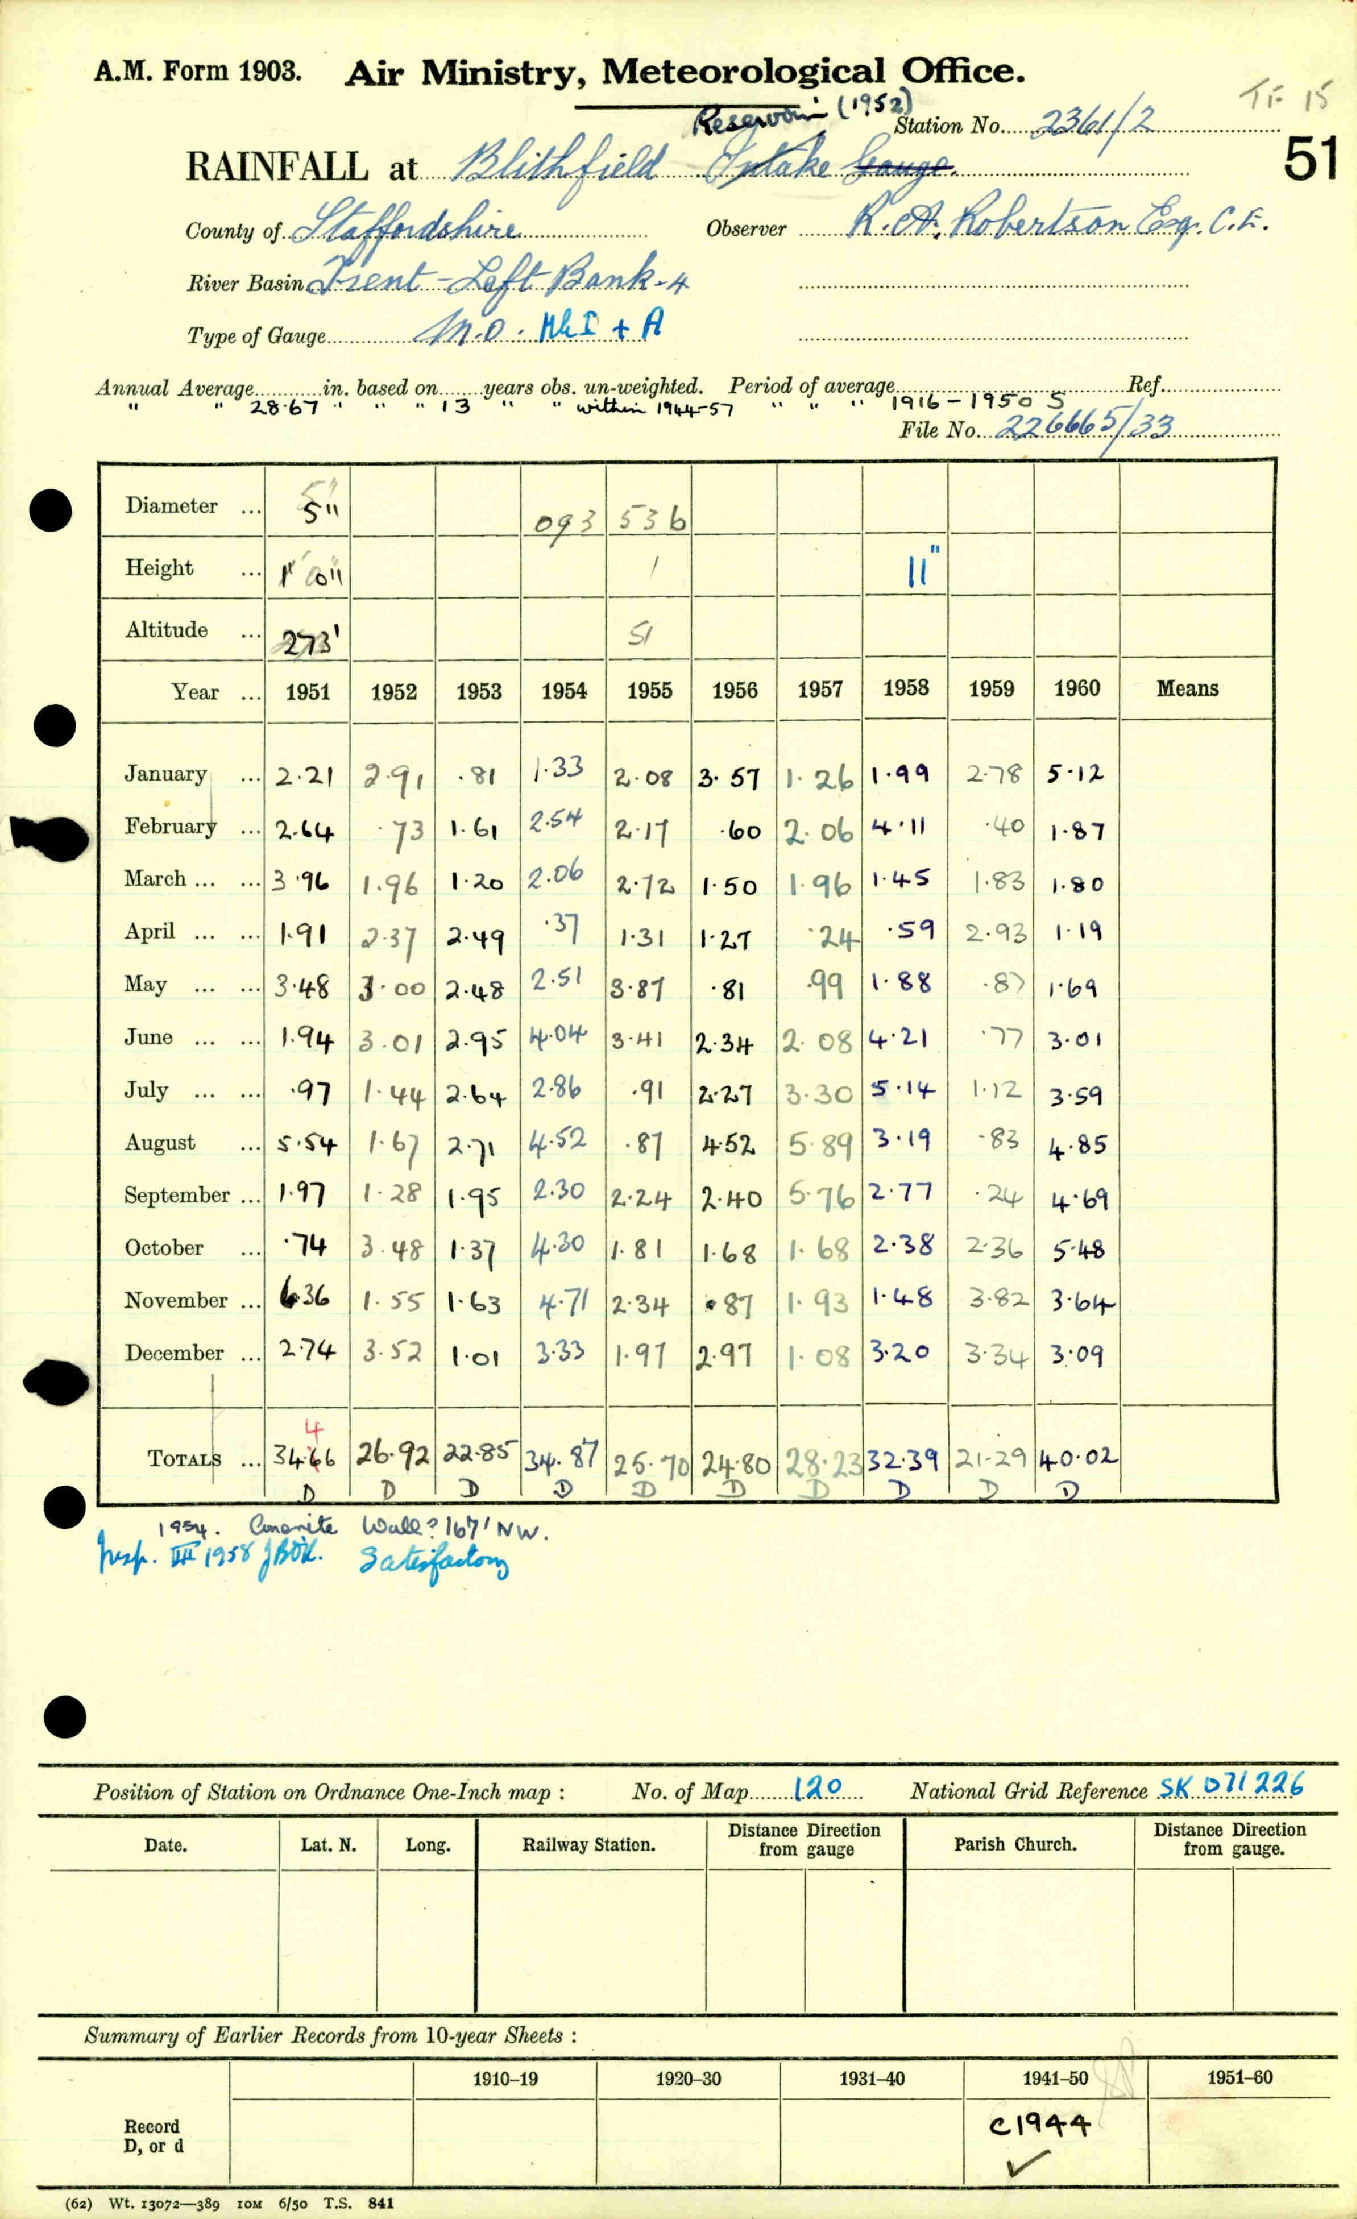 A.M. Form 1903. Air Ministry, Meteorological Office.
TF 15
Reservoir (1952)
Station No. 2361/2
51
RAINFALL at Blithfield Intake Gauge.
County of Staffordshire Observer R. A. Robertson Esq. C.E.
River Basin Trent - Left Bank - 4
Type of Gauge M.O. Mk I + A
Annual Average in. based on years obs. un-weighted. Period of average Ref.
" " 28.67 " " " 13 " " within 1944-57 " " " 1916 - 1950 S
File No. 226665/33
Diameter ... 5" 093 536
Height ... 1' 0" 1 11"
Altitude ... 273' 51
Year ... 1951 1952 1953 1954 1955 1956 1957 1958 1959 1960 Means
January ... 2.21 2.91 .81 1.33 2.08 3.57 1.26 1.99 2.78 5.12
February ... 2.64 .73 1.61 2.54 2.17 .60 2.06 4.11 .40 1.87
March ... ... 3.96 1.96 1.20 2.06 2.72 1.50 1.96 1.45 1.83 1.80
April ... ... 1.91 2.37 2.49 .37 1.31 1.27 .24 .59 2.93 1.19
May ... ... 3.48 3.00 2.48 2.51 3.87 .81 .99 1.88 .87 1.69
June ... ... 1.94 3.01 2.95 4.04 3.41 2.34 2.08 4.21 .77 3.01
July ... ... .97 1.44 2.64 2.86 .91 2.27 3.30 5.14 1.12 3.59
August ... 5.54 1.67 2.71 4.52 .87 4.52 5.89 3.19 .83 4.85
September ... 1.97 1.28 1.95 2.30 2.24 2.40 5.76 2.77 .24 4.69
October ... .74 3.48 1.37 4.30 1.81 1.68 1.68 2.38 2.36 5.48
November ... 6.36 1.55 1.63 4.71 2.34 .87 1.93 1.48 3.82 3.64
December ... 2.74 3.52 1.01 3.33 1.97 2.97 1.08 3.20 3.34 3.09
4
TOTALS ... 34.66 26.92 22.85 34.87 25.70 24.80 28.23 32.39 21.29 40.02
D D D D D D D D D D
1954. Concrete Wall? 167' NW.
Insp. III 1958 Satisfactory
Position of Station on Ordnance One-Inch map : No. of Map 120 National Grid Reference SK 071226
Date. Lat. N. Long. Railway Station. Distance Direction from gauge Parish Church. Distance Direction from gauge.
Summary of Earlier Records from 10-year Sheets :
1910–19 1920–30 1931–40 1941–50 1951–60
Record
D, or d
c1944
✓
(62) Wt. 13072—389 10M 6/50 T.S. 841